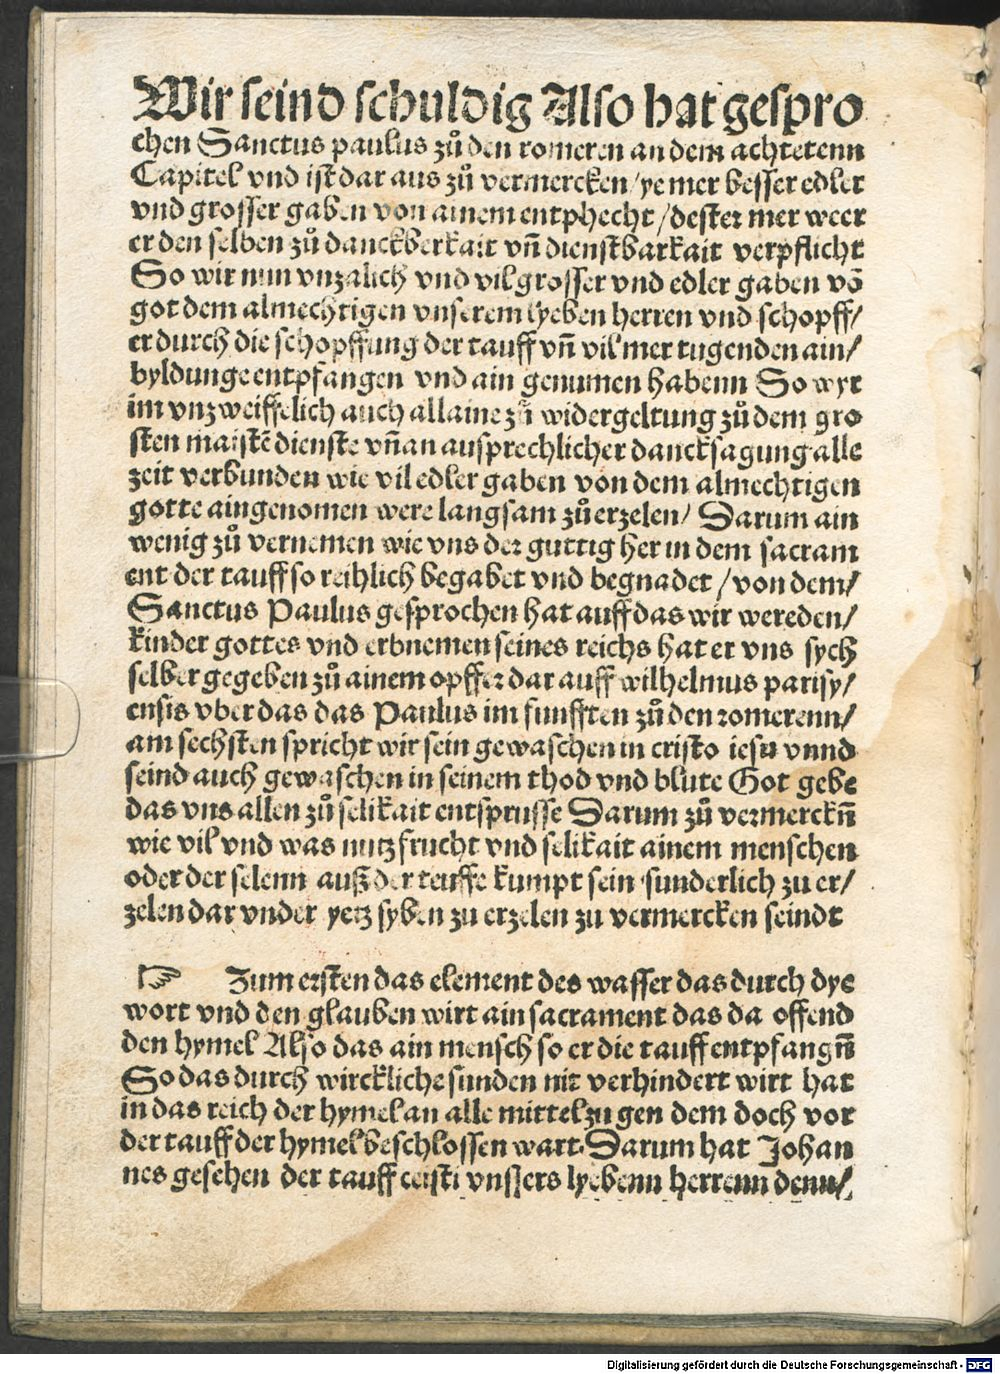 Wir seind schuldig Also hat gespro
chen Sanctus paulus zuͦ den romeren an dem achtetenn
Capitel vnd ist dar aus zuͦ vermercken/ ye mer besser edler
vnd grosser gaben von ainem entphecht/ dester mer weer
er den selben zuͦ danckberkait vn̄ dienstbarkait verpflicht
So wir nun vnzalich vnd vil grosser vnd edler gaben vō
got dem almechtigen vnserem lyeben herren vnd schopff/
er durch die schopffung der tauff vn̄ vil mer tugenden ain/
byldunge entpfangen vnd ain genumen habenn So wyr
im vnzweiffelich auch allaine zuͦ widergeltung zuͦ dem gro
sten maistē dienste vn̄ an ausprechlicher dancksagung alle
zeit verbunden wie vil edler gaben von dem almechtigen
gotte aingenomen were langsam zuͦ erzelen/ Darum ain
wenig zuͦ vernemen wie vns der guttig her in dem sacram
ent der tauff so reihlich begabet vnd begnadet/ von dem/
Sanctus Paulus gesprochen hat auff das wir wereden/
kinder gottes vnd erbnemen seines reichs hat er vns sych
selber gegeben zuͦ ainem opffer dar auff wilhelmus parisy/
ensis vber das das Paulus im funfften zuͦ den romerenn/
am sechsten spricht wir sein gewaschen in cristo iesu vnnd
seind auch gewaschen in seinem thod vnd blute Got gebe
das vns allen zuͦ selikait entsprusse Darum zuͦ vermerckn̄
wie vil vnd was nutz frucht vnd selikait ainem menschen
oder der selenn auß der teuffe kumpt sein sunderlich zu er/
zelen dar vnder yetz syben zu erzelen zu vermercken seindt
☞ Zum ersten das element des wasser das durch dye
wort vnd den glauben wirt ain sacrament das da offend
den hymel Also das ain mensch so er die tauff entpfangn̄
So das durch wirckliche sunden nit verhindert wirt hat
in das reich der hymel an alle mittel zu gen dem doch vor
der tauff der hymel beschlossen wart. Darum hat Johan
nes gesehen der tauff cristi vnssers lyebenn herrenn denn/
Digitalisierung gefördert durch die Deutsche Forschungsgemeinschaft - DFG